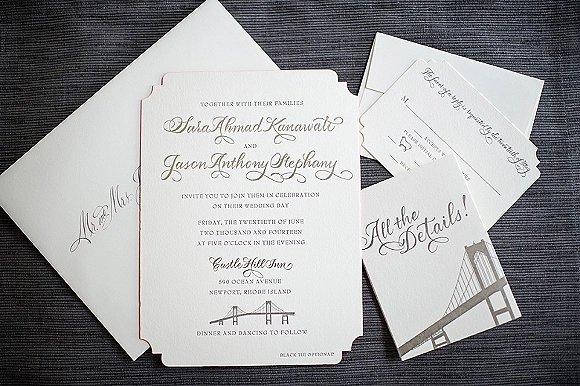 Mr. & Mrs.
TOGETHER WITH THEIR FAMILIES
Sara Ahmad Kanawati
AND
Jason Anthony Stephany
INVITE YOU TO JOIN THEM IN CELEBRATION
ON THEIR WEDDING DAY
FRIDAY, THE TWENTIETH OF JUNE
TWO THOUSAND AND FOURTEEN
AT FIVE O'CLOCK IN THE EVENING
Castle Hill Inn
590 OCEAN AVENUE
NEWPORT, RHODE ISLAND
DINNER AND DANCING TO FOLLOW
BLACK TIE OPTIONAL
The favor of a reply is requested by the
M
ACCEPTS
All the
Details!